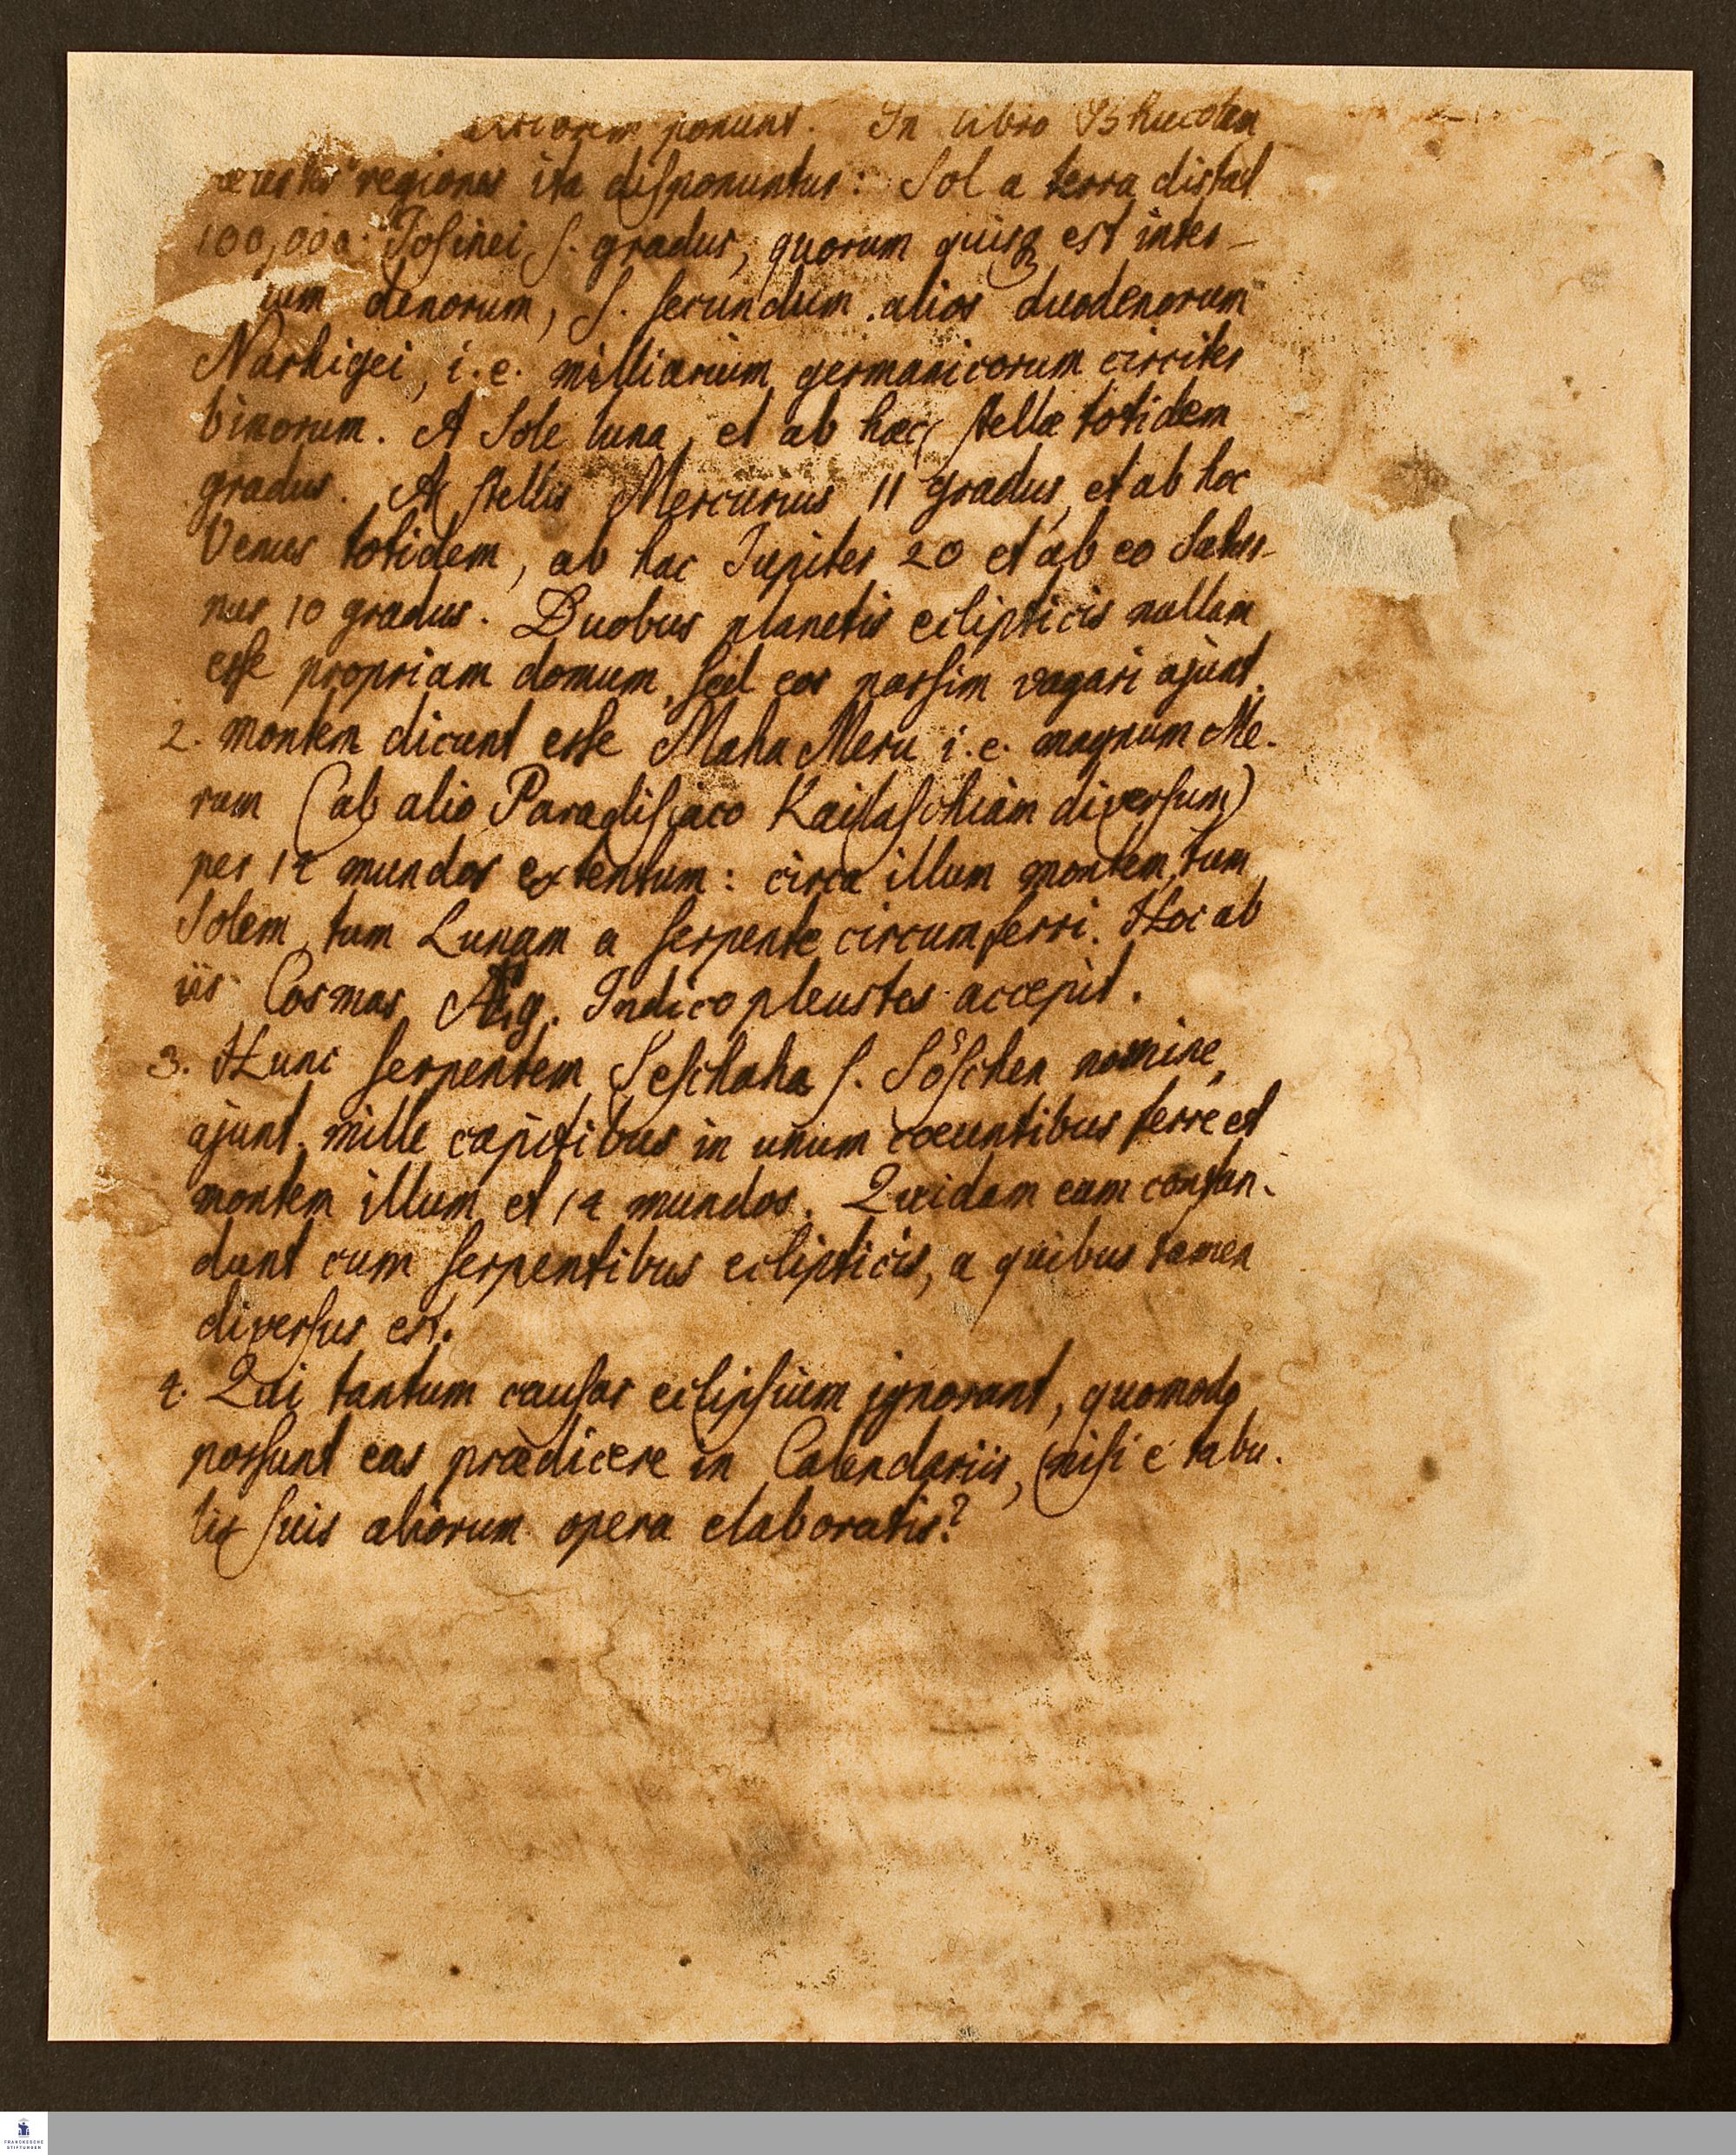 ponunt. In libro Bhucolam
regiones ita disponuntur: Sol a terra distat
100,000. Josinei, s. gradus, quorum quisq est inter-
denorum, s. secundum alios duodenorum
Narhigei, i.e. milliarium germanicorum circiter
binorum. A Sole luna, et ab hac stellæ totidem
gradus. A stellis Mercurius 11 gradus, et ab hoc
Venus totidem, ab hac Jupiter 20 et ab eo Satur-
nus 10 gradus. Duobus planetis eclipticis nullam
esse propriam domum, sed eos passim vagari ajunt.
2. montem dicunt esse Maha Meru i.e. magnum Me-
rum (ab alio Paradisiaco Kailaschiam diversum)
per 14 mundos extentum: circa illum montem, tum
Solem, tum Lunam a serpente circumferri. Hoc ab
iis Cosmas Æg. Indicopleustes accepit.
3. Hunc serpentem Seschaha s. Söschen nomine,
ajunt, mille capitibus in unum coeuntibus ferre et
montem illum et 14 mundos. Quidam eum confun-
dunt cum serpentibus eclipticis, a quibus tamen
diversus est.
4. Qui tantum causas eclipsium ignorant, quomodo
possunt eas prædicere in Calendariis, nisi e tabu-
lis suis aliorum opera elaboratis?
FRANCKESCHE
STIFTUNGEN